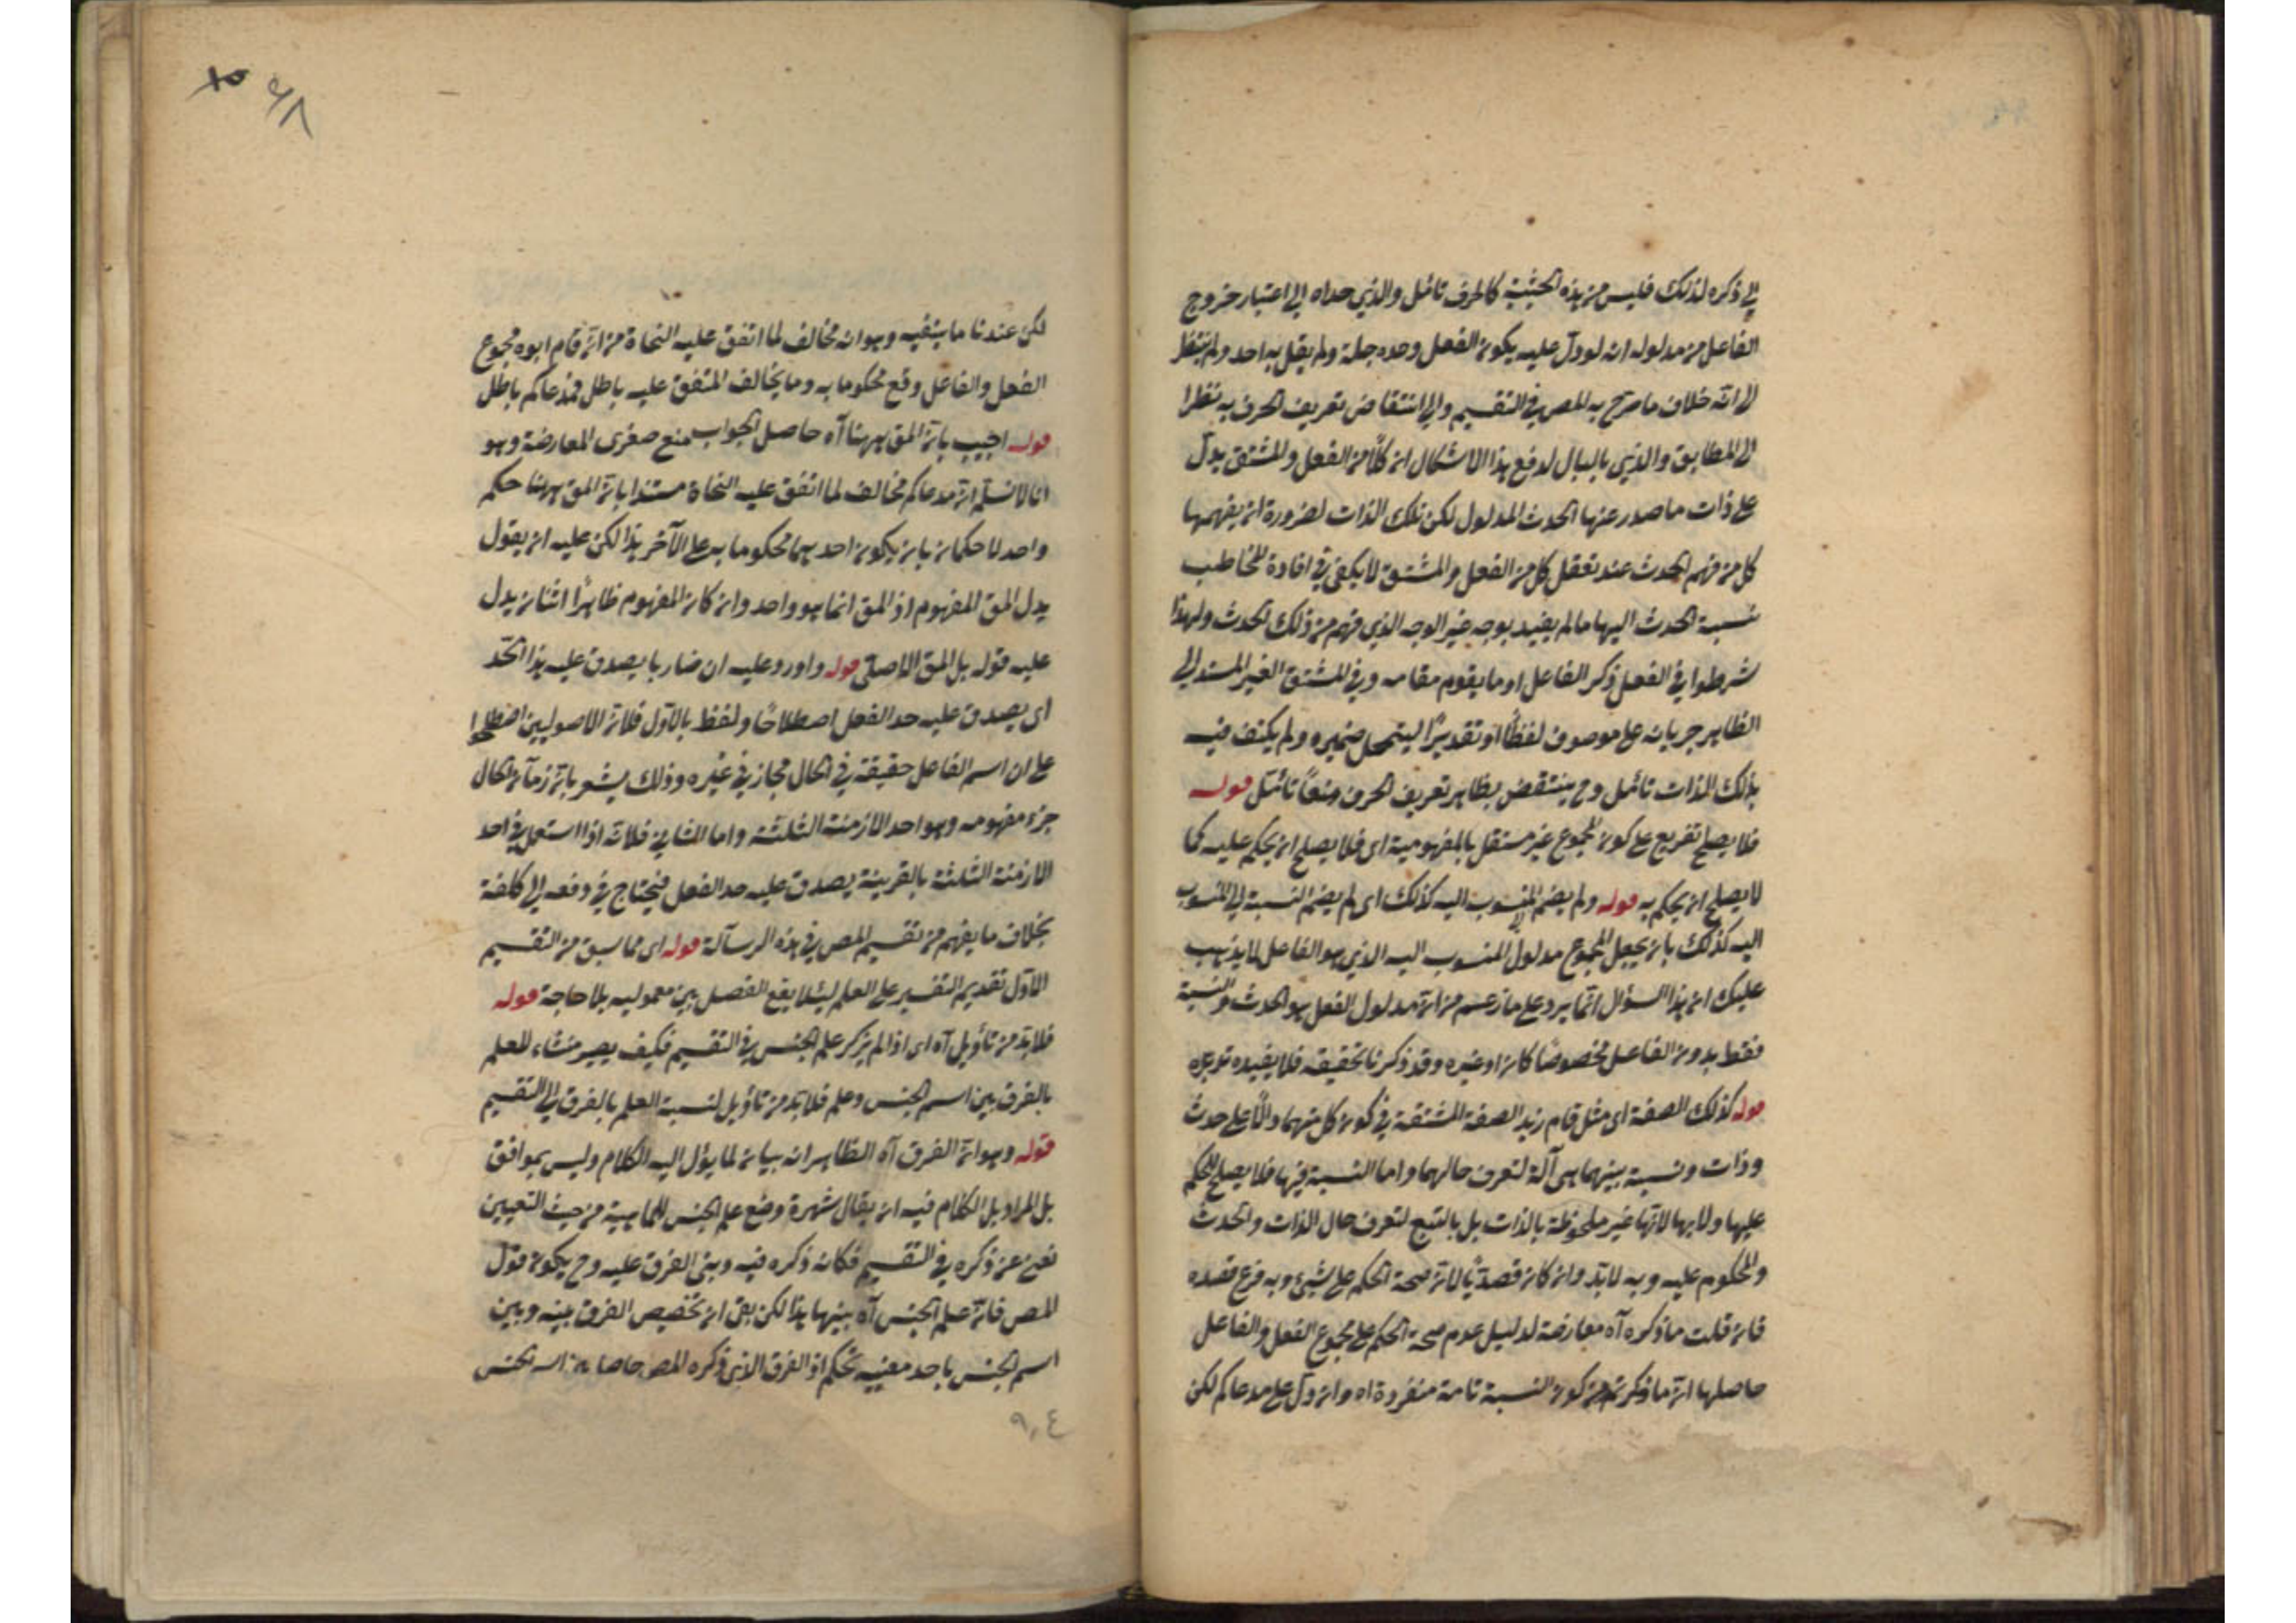 الى ذكره لذلك فليس من هذه الحيثية كالحرف تأمل والذي حداه الى اعتبار خروج
الفاعل من مدلوله انه لو دل عليه يكون الفعل وحده جملة ولم يقل به احد ولم ينظر
الى انه خلاف ما صرح به المص في التقسيم والى انتقاض تعريف الحرف به نظرا
الى المطابق والذي بالبال لدفع هذا الاشكال ان كلًّا من الفعل والمشتق يدل
على ذات ما صدر عنها الحدث المدلول لكن تلك الذات لضرورة ان يفهمها
كل من فهم الحدث عند تعقل كل من الفعل والمشتق لا يكفي في افادة المخاطب
نسبة الحدث اليها ما لم يفيد بوجه غير الوجه الذي فهم من ذلك الحدث ولهذا
شرطوا في الفعل ذكر الفاعل او ما يقوم مقامه وفي المشتق الغير المسند الى
الظاهر جريانه على موصوف لفظًا او تقديرًا ليتحمل ضميره ولم يكتف فيه
بذلك الذات تأمل وح ينتقض بظاهر تعريف الحرف منعًا تأمل قوله
فلا يصلح تفريع على كون المجموع غير مستقل بالمفهومية اى فلا يصلح ان يحكم عليه كما
لا يصلح ان يحكم به قوله ولم يضم المنسوب اليه كذلك اى لم يضم النسبة الى المنسوب
اليه كذلك بان يجعل المجموع مدلول المنسوب اليه الذي هو الفاعل لما يذهب
عليك ان هذا السؤال انما يرد على ما زعم من ان مدلول الفعل هو الحدث والنسبة
فقط بدون الفاعل مخصوصًا كان او غيره وقد ذكرنا تحقيقه فلا يفيده
قوله كذلك الصفة اى مثل قام زيد الصفة المشتقة في كون كل منهما دالًّا على حدث
وذات ونسبة بينهما هى آلة لتعرف حالهما واما النسبة فيها فلا يصلح للحكم
عليها ولا بها لانها غير ملحوظة بالذات بل بالتبع لتعرف حال الذات والحدث
والمحكوم عليه وبه لابد وان كان قصديًّا لان صحة الحكم على شيئ وبه فرع قصده
فان قلت ما ذكره آه معارضة لدليل عدم صحة الحكم على مجموع الفعل والفاعل
حاصلها ان ما ذكرتم من كون النسبة تامة منفردة اه وان دل على مدعاكم لكن
لكن عندنا ما ينفيه وهو انه مخالف لما اتفق عليه النحاة من ان قام ابوه مجموع
الفعل والفاعل وقع محكوما به وما يخالف المتفق عليه باطل فمدعاكم باطل
قوله اجيب بان المق ههنا آه حاصل الجواب منع صغرى المعارضة وهو
انا لا نسلم ان مدعاكم مخالف لما اتفق عليه النحاة مستندا بان المق ههنا حكم
واحد لا حكمان بان يكون احدهما محكوما به على الآخر هذا لكن عليه ان يقول
بدل المق المفهوم اذ المق انما هو واحد وان كان المفهوم ظاهرًا اثنان يدل
عليه قوله بل المق الاصلى قوله واورد عليه ان ضاربا يصدق عليه هذا الحد
اى يصدق عليه حد الفعل اصطلاحًا ولفظ بالاول فلان الاصوليين اصطلحوا
على ان اسم الفاعل حقيقة في الحال مجاز في غيره وذلك يشعر بان زمان الحال
جزء مفهومه وهو احد الازمنة الثلثة واما الثاني فلانه اذا استعمل في احد
الازمنة الثلثة بالقرينة يصدق عليه حد الفعل فيحتاج في دفعه الى كلفة
بخلاف ما يفهم من تقسيم المص في هذه الرسالة قوله اى مما سبق من التقسيم
الاول تقديم التفسير على العلم لئلا يقع الفصل بين معموليه بلا حاجة قوله
فلابد من تأويل آه اى اذا لم يذكر علم الجنس في التقسيم فكيف يصير منشاء للعلم
بالفرق بين اسم الجنس وعلم فلابد من تأويل لنسبة العلم بالفرق الى التقسيم
قوله وهو ان الفرق آه الظاهر انه بيان لما يؤل اليه الكلام وليس بموافق
بل المراد بل الكلام فيه ان يقال شهرة وضع علم الجنس للماهية من حيث التعيين
تغنى عن ذكره في التقسيم فكانه ذكره فيه وبنى الفرق عليه وح يكون قول
المص فان علم الجنس آه بينهما هذا لكن بقى ان تخصيص الفرق بينه وبين
اسم الجنس باحد معنييه تحكم اذ الفرق الذي ذكره المص اسم الجنس
٩٠٤